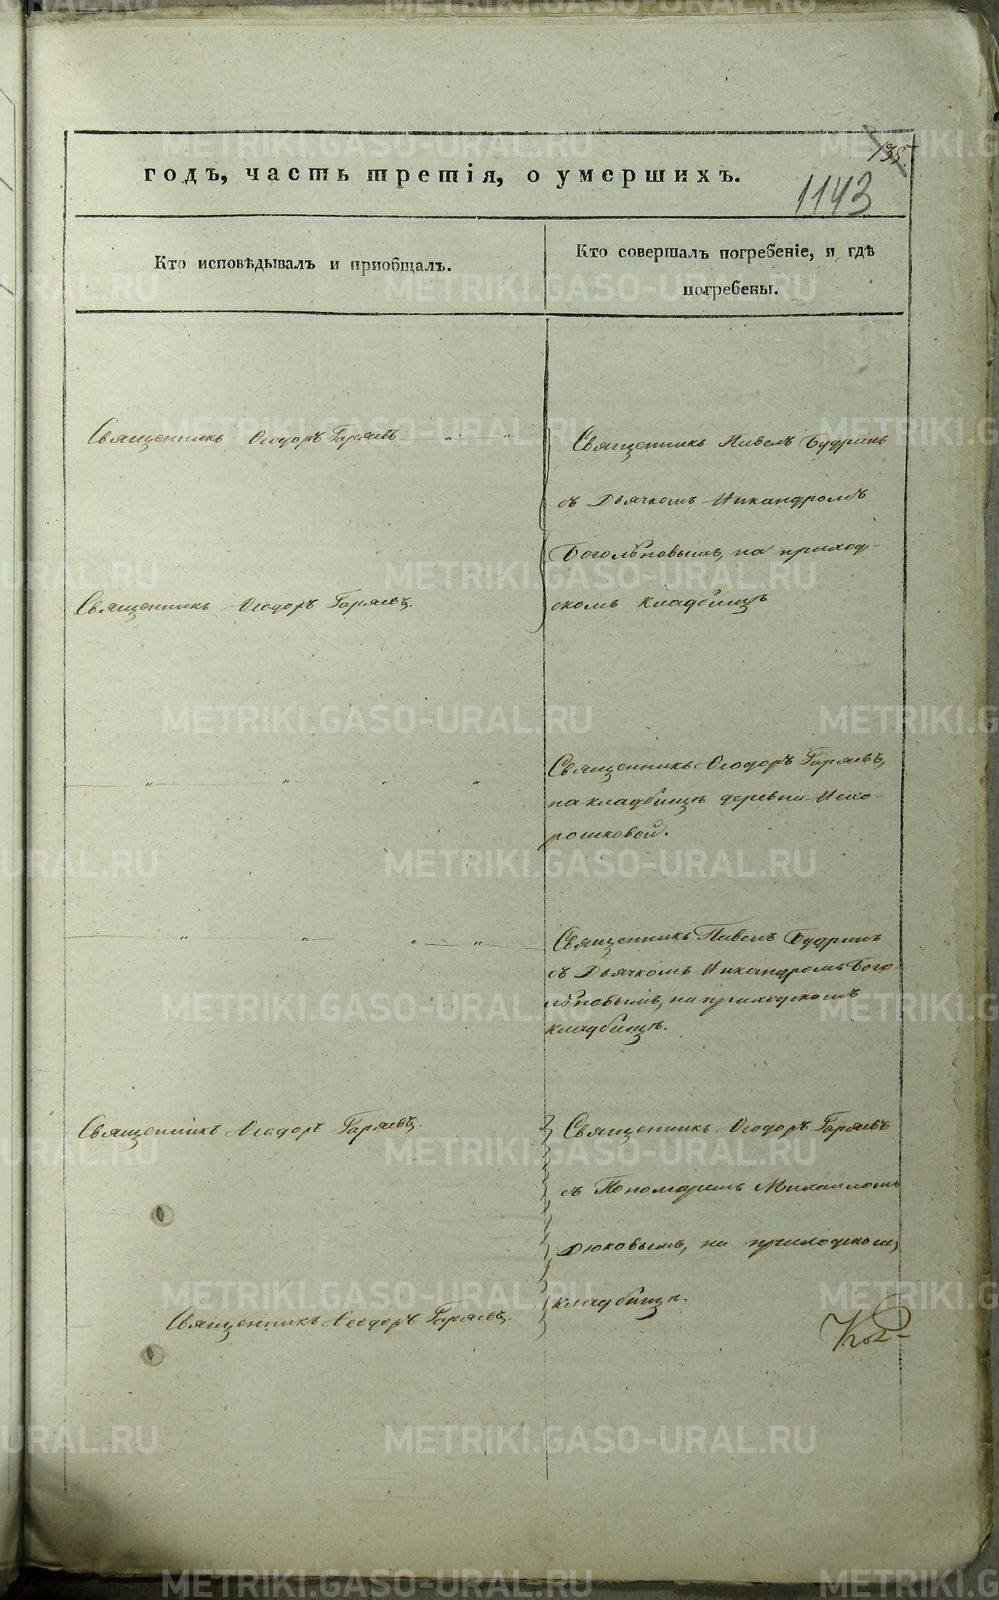 138.
1143
годъ, часть третія, о умершихъ.
Кто исповѣдывалъ и пріобщалъ.
Кто совершалъ погребеніе, и гдѣ
погребены.
Священникъ Ѳеодоръ Горяевъ " "
Священникъ Павелъ Будринъ
съ Дьячкомъ Никандромъ
Боголѣповымъ, на приход-
скомъ кладбищѣ
Священникъ Ѳеодоръ Горяевъ.
" " " "
Священникъ Ѳеодоръ Горяевъ,
на кладбищѣ деревни Нехо-
рошковой.
" " " "
Священникъ Павелъ Будринъ
съ Дьячкомъ Никандромъ Бого-
лѣповымъ, на приходскомъ
кладбищѣ.
Священникъ Ѳеодоръ Горяевъ.
Священникъ Ѳеодоръ Горяевъ
съ Пономаремъ Михаиломъ
Дюковымъ, на приходскомъ
кладбищѣ.
Священникъ Ѳеодоръ Горяевъ.
METRIKI.GASO-URAL.RU